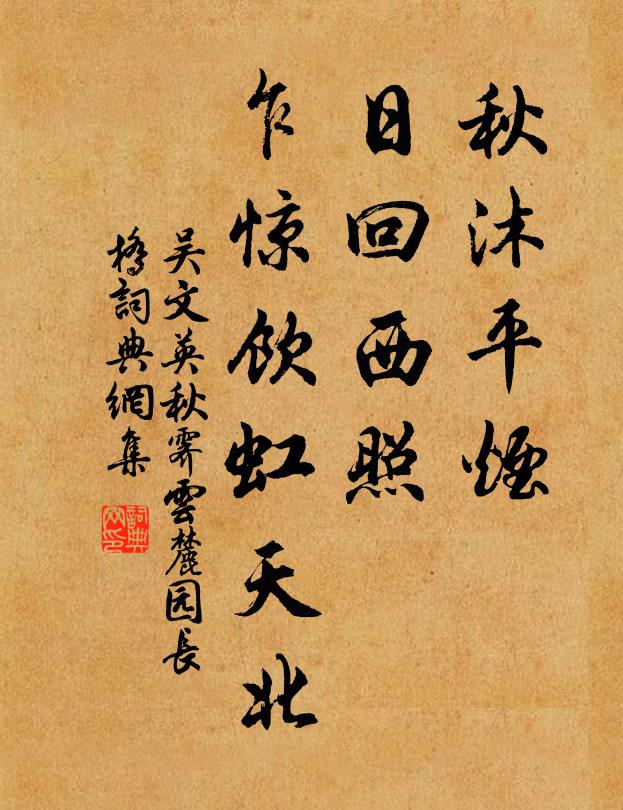 秋沐平煙
日回西照
乍惊饮虹天北
吴文英秋霁雲麓园長
橋詞典網集
詞典
网印